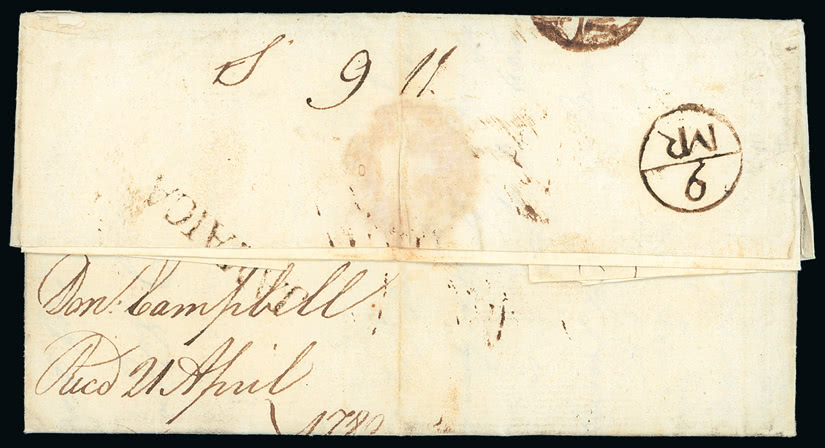 S 9 11
MR
AICA
Don: Campbell
Recd 21 April